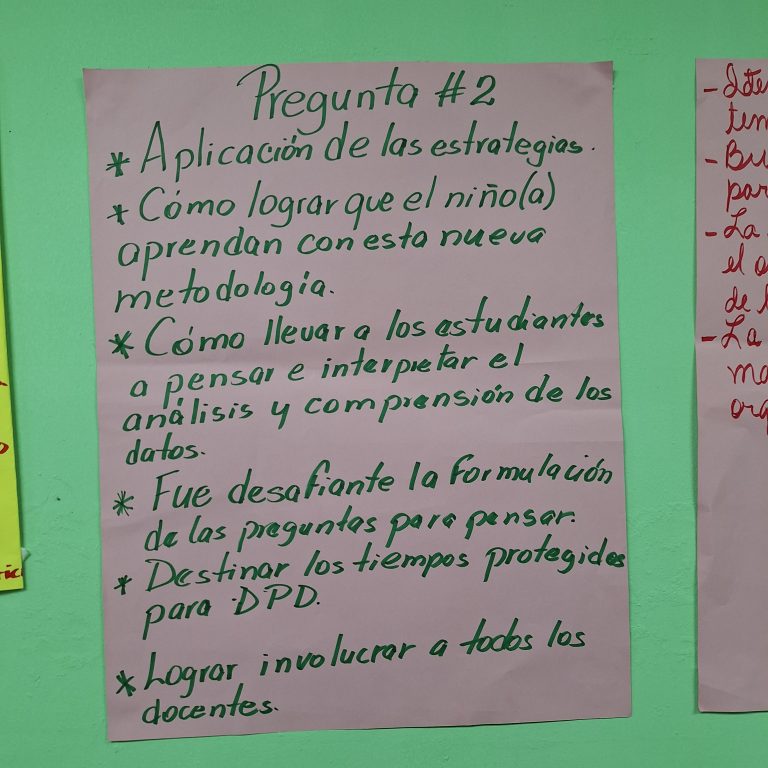 Pregunta #2
* Aplicación de las estrategias.
* Cómo lograr que el niño(a)
aprendan con esta nueva
metodología.
* Cómo llevar a los estudiantes
a pensar e interpretar el
análisis y comprensión de los
datos.
* Fue desafiante la formulación
de las preguntas para pensar.
* Destinar los tiempos protegidos
para DPD.
* Lograr involucrar a todos los
docentes.
- Bu
par
- La
el
de l
- La